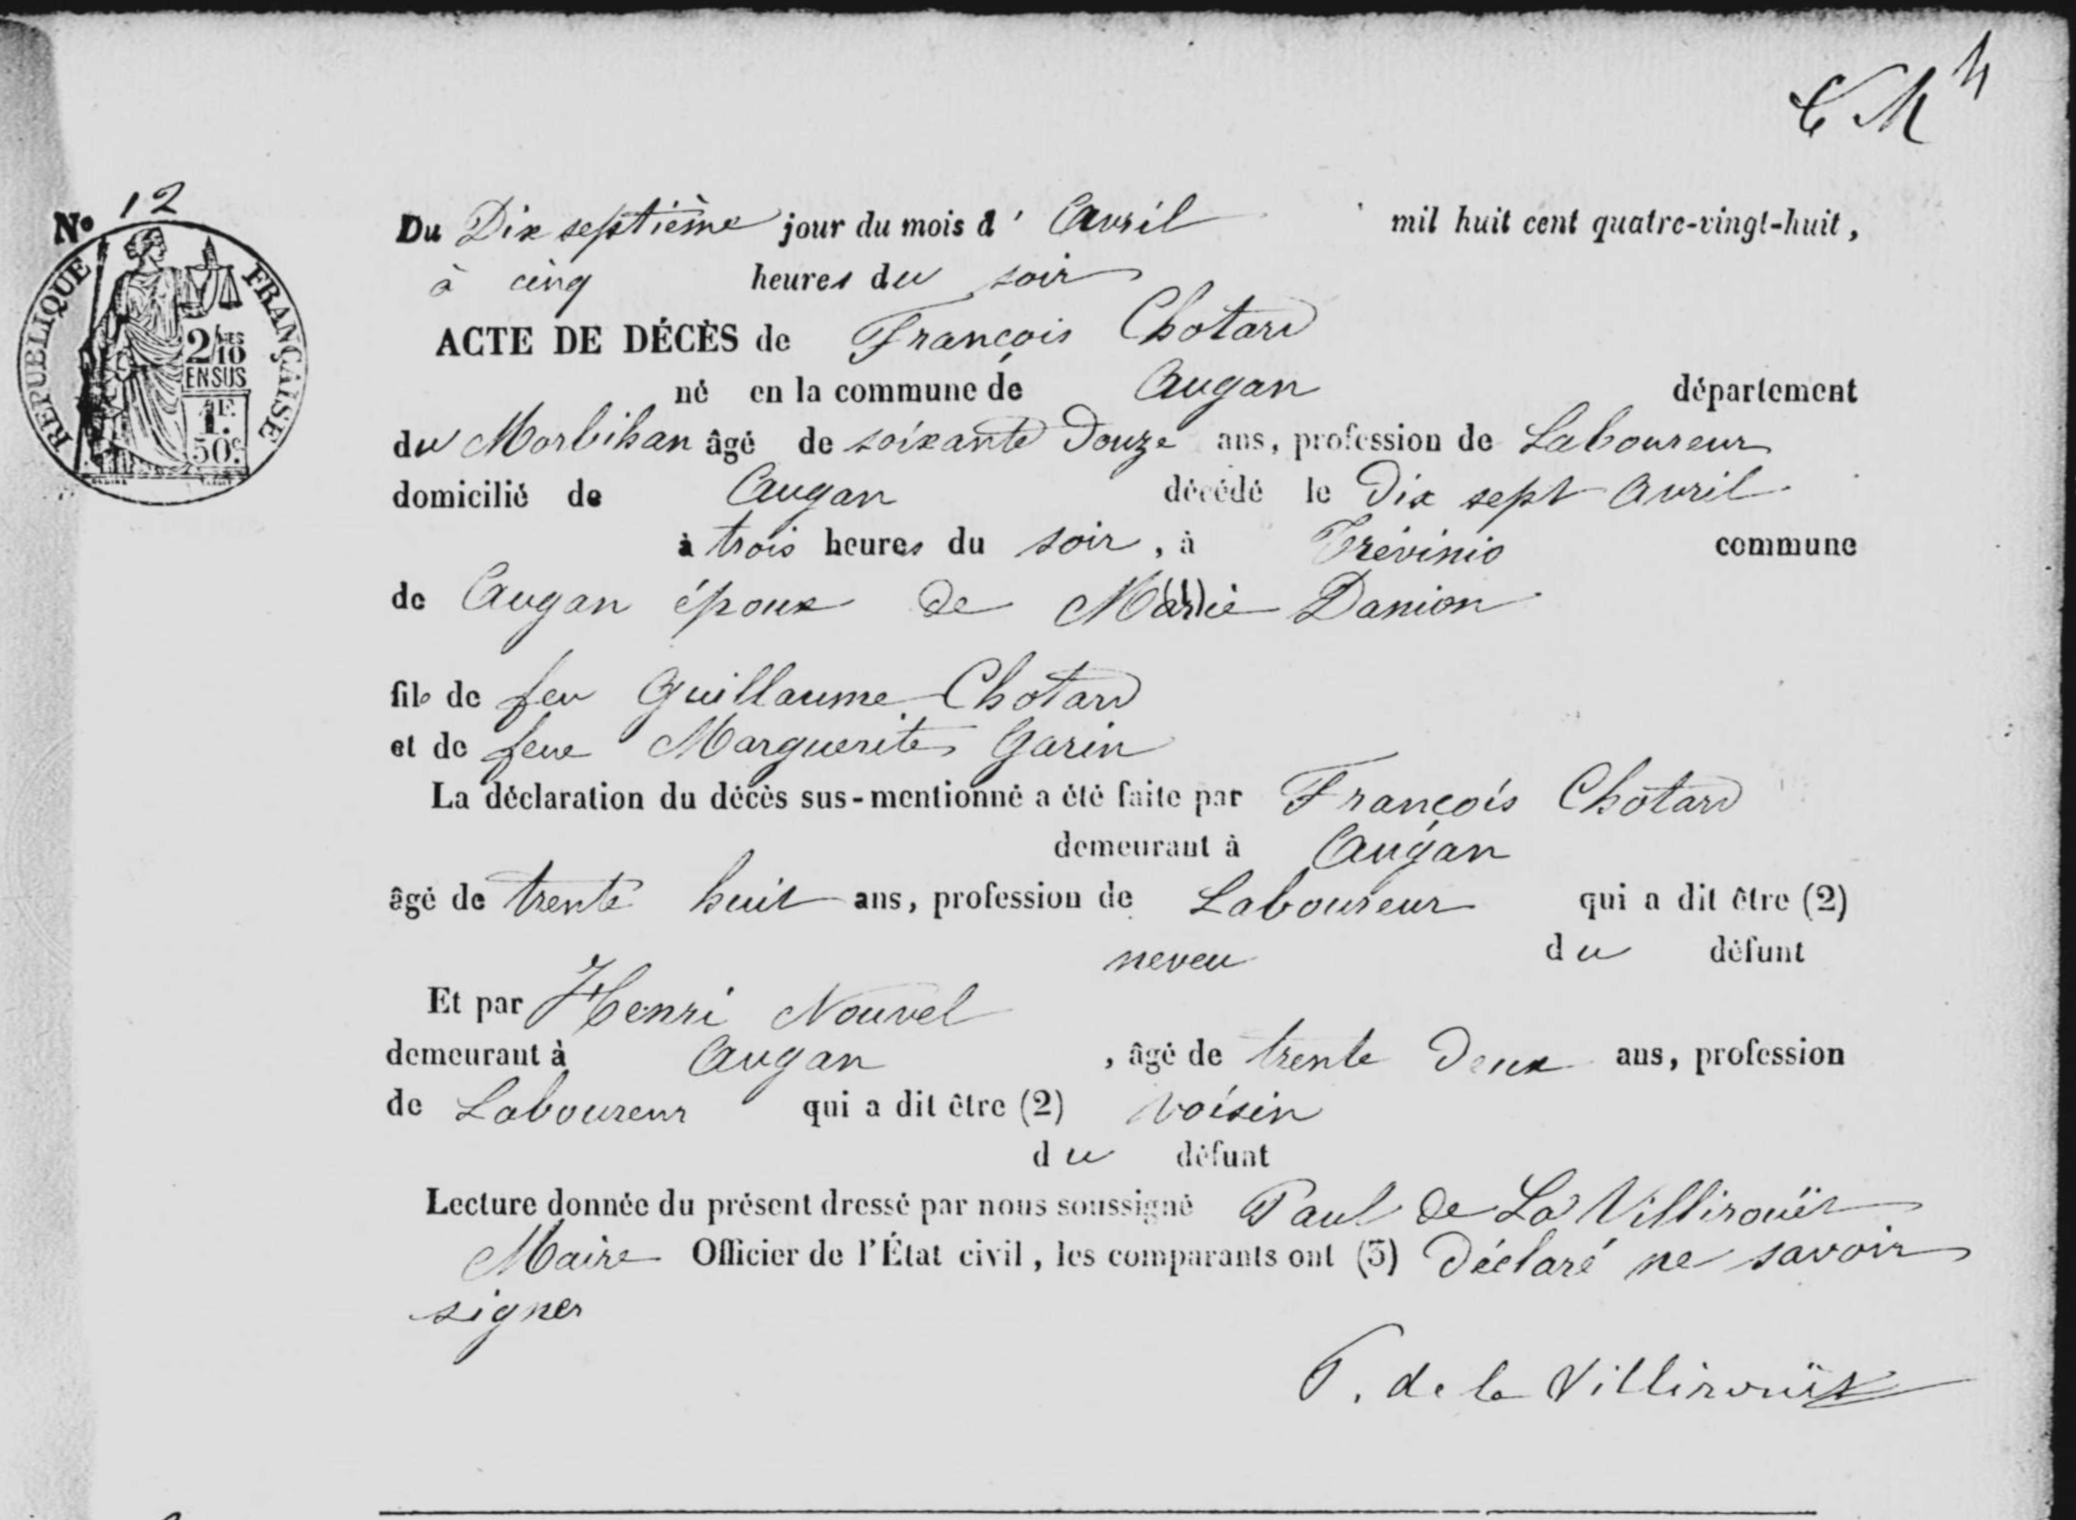 C M 4
N° 12
RÉPUBLIQUE FRANÇAISE
2/10MES
EN SUS
1F.
50c.
Du Dix septième jour du mois d' Avril mil huit cent quatre-vingt-huit,
à cinq heures du soir
ACTE DE DÉCÈS de François Chotard
né en la commune de Augan département
du Morbihan âgé de soixante Douze ans, profession de Laboureur
domicilié de Augan décédé le Dix sept Avril
à trois heures du soir, à Trévinio commune
de Augan époux de Marie Danion
fils de feu Guillaume Chotard
et de feue Marguerite Garin
La déclaration du décès sus-mentionné a été faite par François Chotard
demeurant à Augan
âgé de trente huit ans, profession de Laboureur qui a dit être (2)
neveu du défunt
Et par Henri Nouvel
demeurant à Augan, âgé de trente Deux ans, profession
de Laboureur qui a dit être (2) voisin
du défunt
Lecture donnée du présent dressé par nous soussigné Paul de La Villirouët
Maire Officier de l'État civil, les comparants ont (3) Déclaré ne savoir
signer
P. de la Villirouët